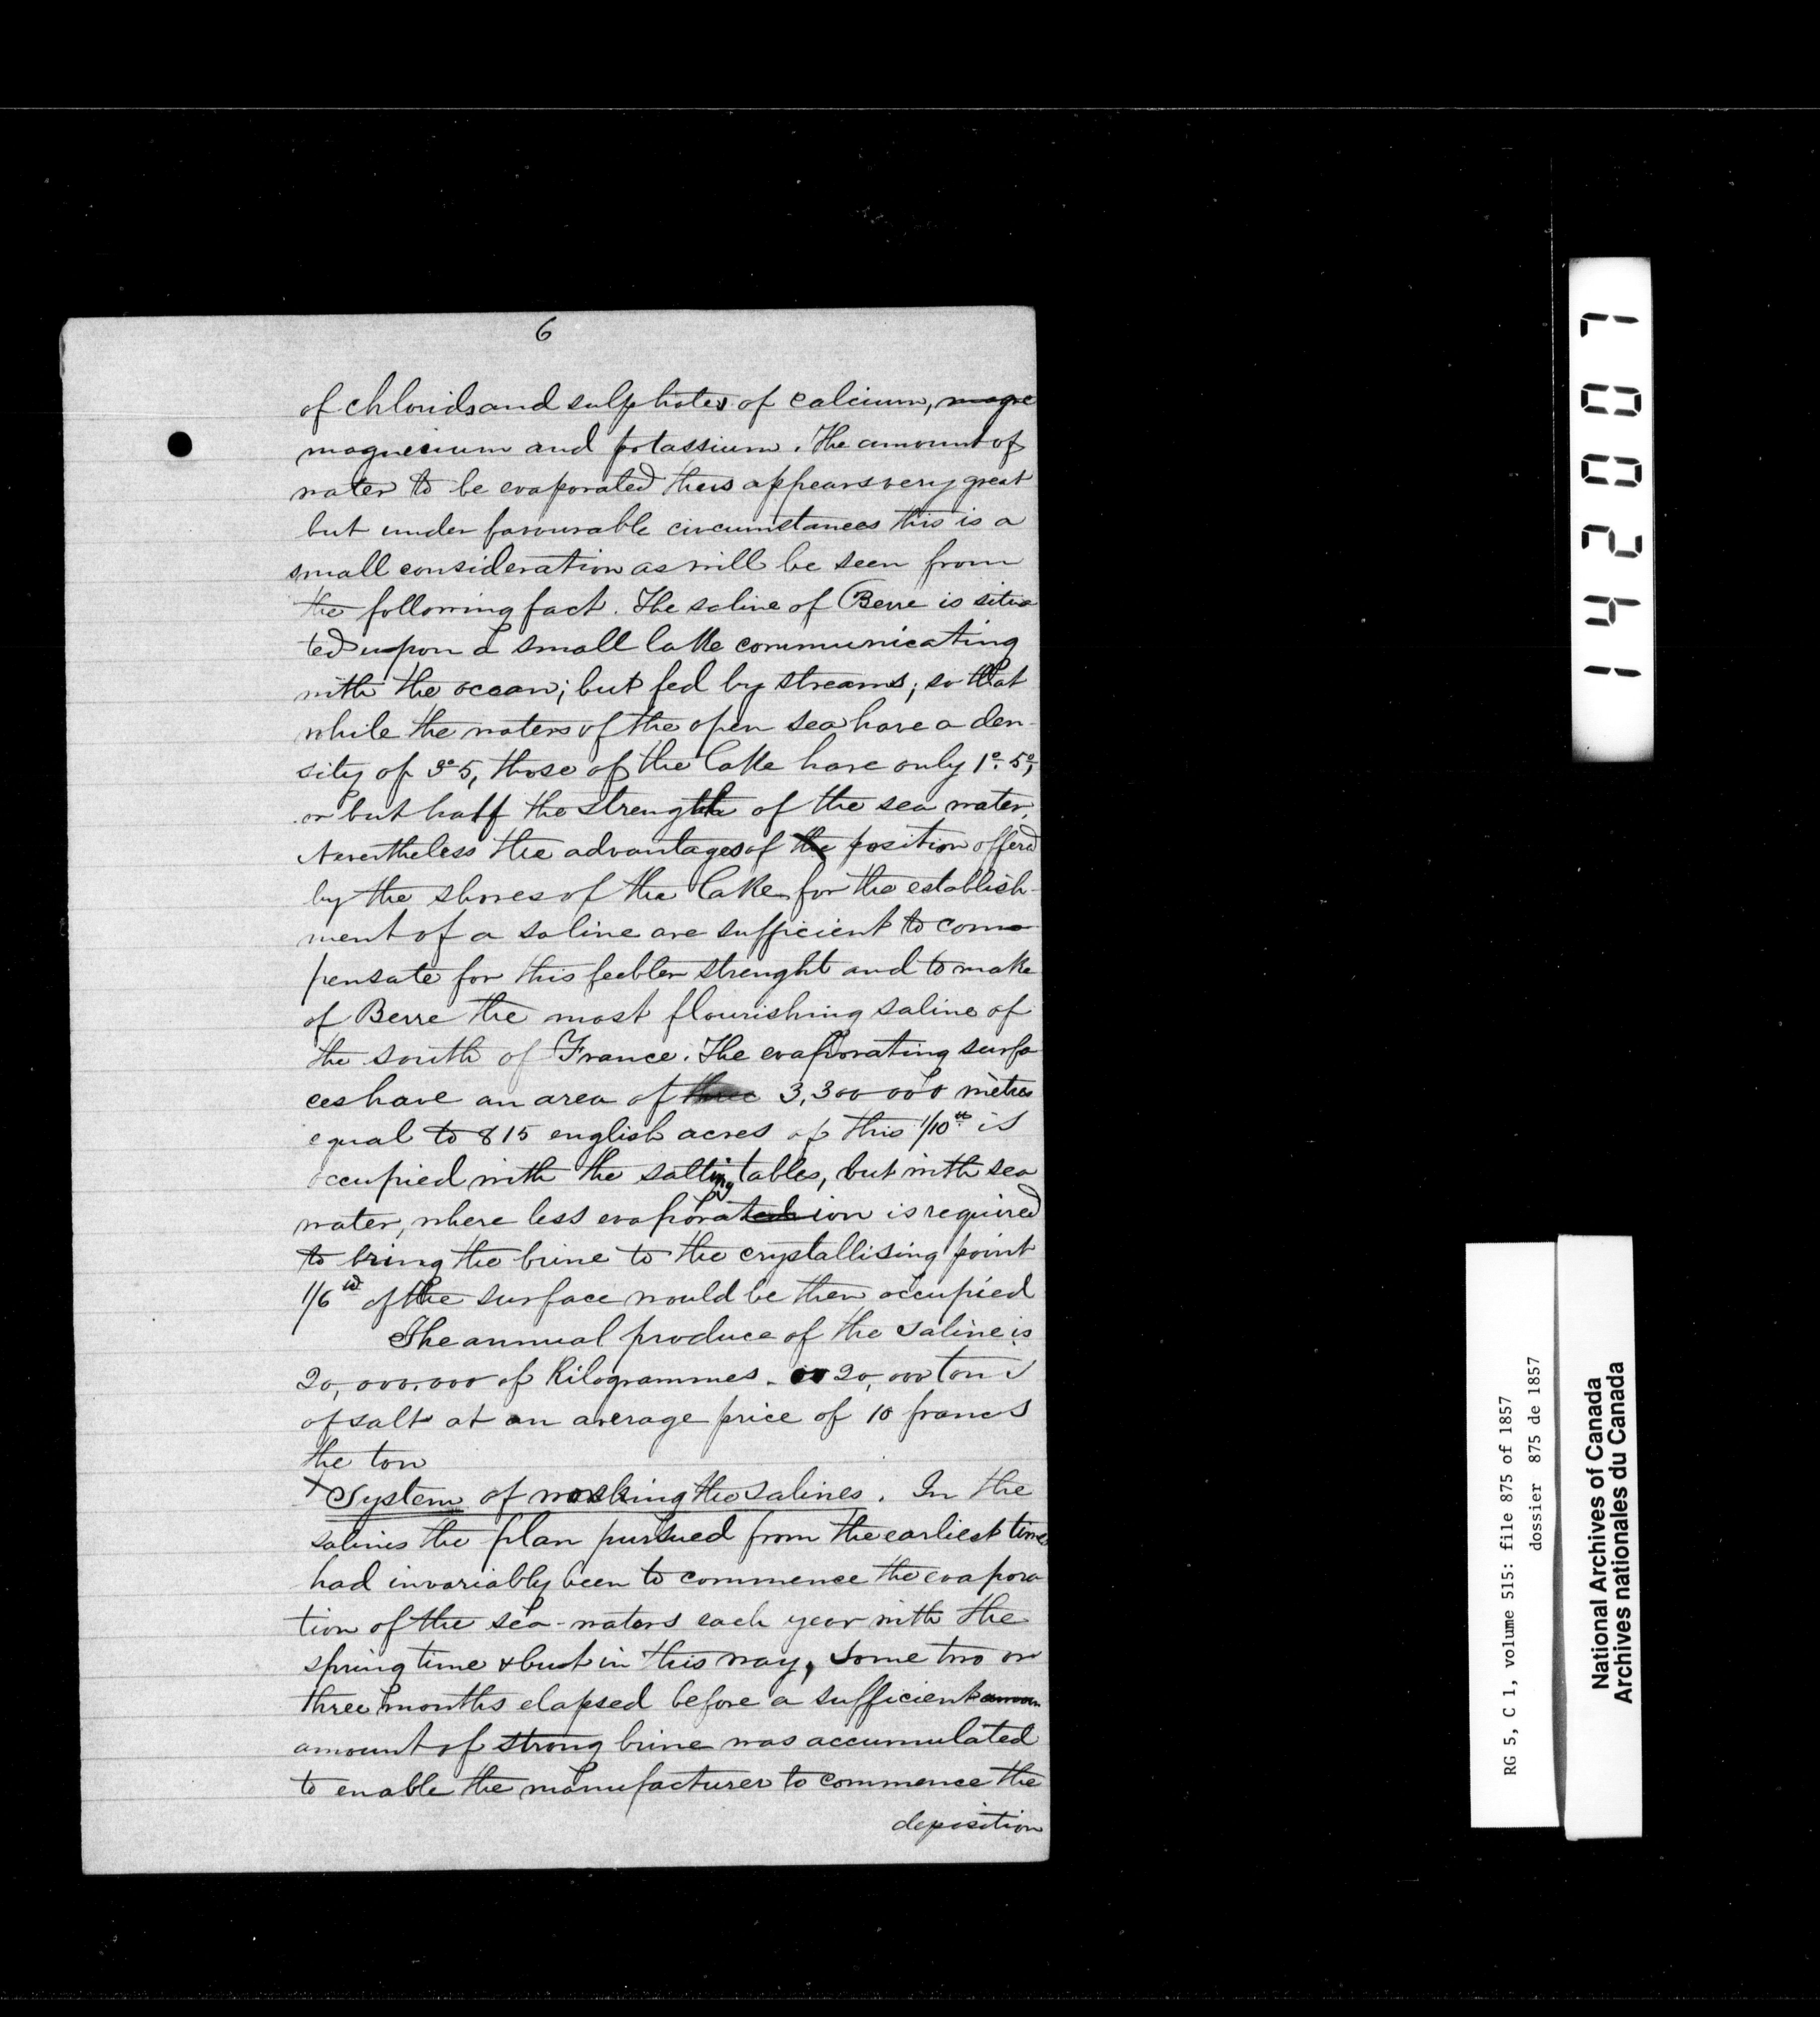 6
of chlorids and sulphates of calcium, magne
magnesium and potassium. The amount of
water to be evaporated thus appears very great
but under favourable circumstances this is a
small consideration as will be seen from
the following fact. The saline of Berre is situa
ted upon a small lake communicating
with the ocean; but fed by streams; so that
while the waters of the open sea have a den-
sity of 3°5, those of the lake have only 1°.5°,
or but half the strength of the sea water,
Nevertheless the advantages of the position offered
by the shores of the lake for the establish-
ment of a saline are sufficient to com-
pensate for this feebler strenght and to make
of Berre the most flourishing saline of
the south of France. The evaporating surfa
ces have an area of three 3,300 000 mètres
equal to 815 english acres of this 1/10th is
occupied with the salting tables, but with sea
water, where less evaporation is required
to bring the brine to the crystallising point
1/6th of the surface would be then occupied
The annual produce of the saline is
20,000.000 of Kilogrammes. or 20,000 tons
of salt at an average price of 10 francs
the ton
x System of working the salines. In the
salines the plan pursued from the earliest times
had invariably been to commence the evapora
tion of the sea-waters each year with the
spring time & but in this way, some two or
three months elapsed before a sufficient amoun
amount of strong brine was accumulated
to enable the manufacturer to commence the
deposition
142007
RG 5, C 1, volume 515: file 875 of 1857
dossier 875 de 1857
National Archives of Canada
Archives nationales du Canada